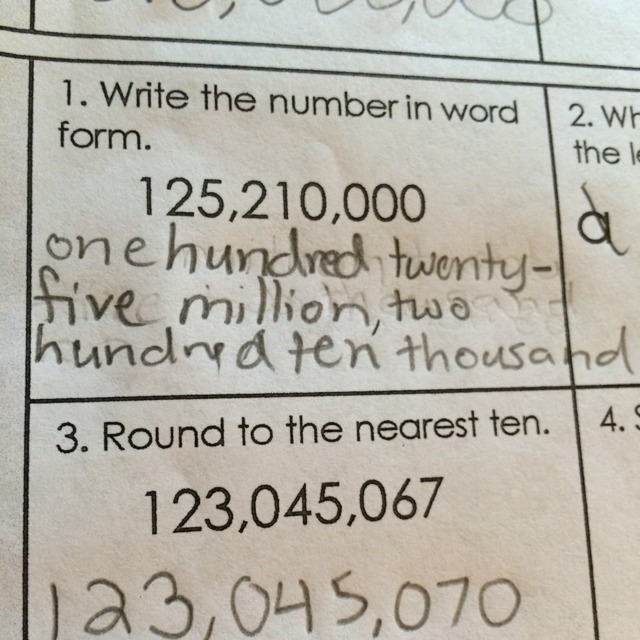 1. Write the number in word
form.
125,210,000
one hundred twenty-
five million, two
hundred ten thousand
2. Wh
the l
a
3. Round to the nearest ten.
123,045,067
123,045,070
4. S